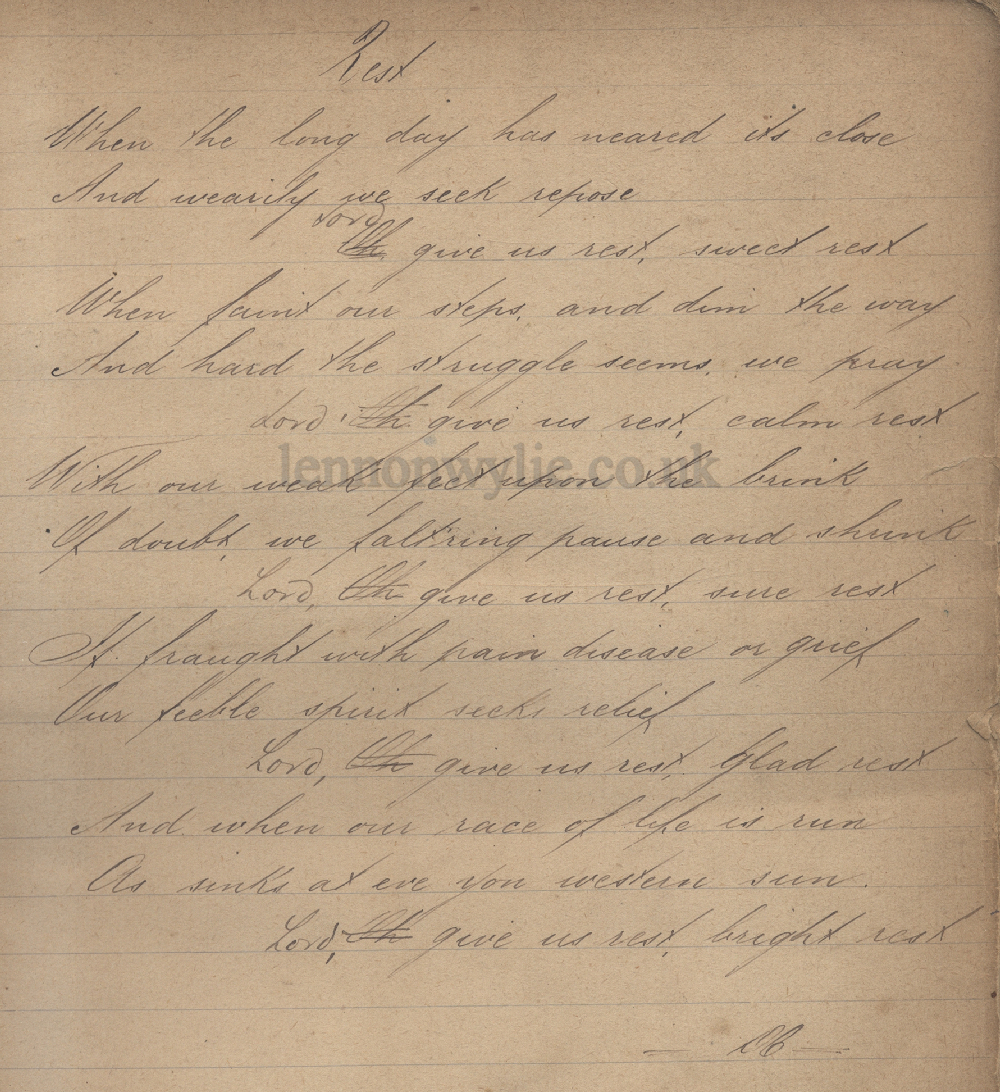 Rest
When the long day has neared its close
And wearily we seek repose
Lord
Oh give us rest, sweet rest
When faint our steps, and dim the way
And hard the struggle seems, we pray
Lord, Oh give us rest, calm rest
lennonwylie.co.uk
With our weak feet upon the brink
Of doubt, we falt'ring pause and shrink
Lord, Oh give us rest, sure rest
If fraught with pain disease or grief
Our feeble spirit seeks relief
Lord, Oh give us rest, glad rest
And when our race of life is run
As sinks at eve yon western sun.
Lord, Oh give us rest, bright rest